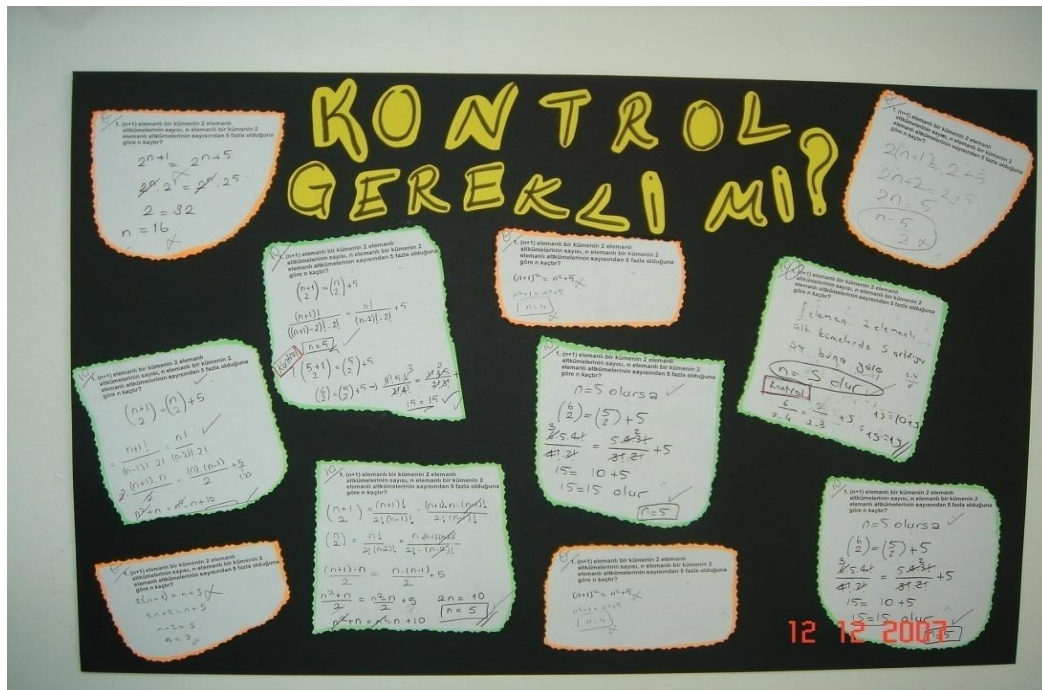 KONTROL
GEREKLİ Mİ?
1. (n+1) elemanlı bir kümenin 2 elemanlı
altkümelerinin sayısı, n elemanlı bir kümenin 2
elemanlı altkümelerinin sayısından 5 fazla olduğuna
göre n kaçtır?
2^n+1 = 2^n+5
2^n . 2^1 = 2^n . 2^5
2 = 32
n = 16
1. (n+1) elemanlı bir kümenin 2 elemanlı
altkümelerinin sayısı, n elemanlı bir kümenin 2
elemanlı altkümelerinin sayısından 5 fazla olduğuna
göre n kaçtır?
2n+2 = 2+5
2n = 5
n = 5/2
1. (n+1) elemanlı bir kümenin 2 elemanlı
altkümelerinin sayısı, n elemanlı bir kümenin 2
elemanlı altkümelerinin sayısından 5 fazla olduğuna
göre n kaçtır?
(n+1 2) = (n 2) + 5
(n+1)! / ((n+1)-2)! . 2! = n! / (n-2)! . 2! + 5
n = 5
Kontrol
(5+1 2) = (5 2) + 5
15 = 15
1. (n+1) elemanlı bir kümenin 2 elemanlı
altkümelerinin sayısı, n elemanlı bir kümenin 2
elemanlı altkümelerinin sayısından 5 fazla olduğuna
göre n kaçtır?
(n+1)² = n²+5
n = 4
(n+1) elemanlı bir kümenin 2 elemanlı
altkümelerinin sayısı, n elemanlı bir kümenin 2
elemanlı altkümelerinin sayısından 5 fazla olduğuna
göre n kaçtır?
2 elemanlı
alt kümelerinde 5
buna göre
n = 5 olur
Kontrol
1. (n+1) elemanlı bir kümenin 2 elemanlı
altkümelerinin sayısı, n elemanlı bir kümenin 2
elemanlı altkümelerinin sayısından 5 fazla olduğuna
göre n kaçtır?
(n+1 2) = (n 2) + 5
n²+n = n²-n+10
1. (n+1) elemanlı bir kümenin 2 elemanlı
altkümelerinin sayısı, n elemanlı bir kümenin 2
elemanlı altkümelerinin sayısından 5 fazla olduğuna
göre n kaçtır?
n=5 olursa
(6 2) = (5 2) + 5
6.5.4! / 4!.2! = 5.4.3! / 3!.2! + 5
15 = 10+5
15=15 olur
n=5
1. (n+1) elemanlı bir kümenin 2 elemanlı
altkümelerinin sayısı, n elemanlı bir kümenin 2
elemanlı altkümelerinin sayısından 5 fazla olduğuna
göre n kaçtır?
n²+n / 2 = n²-n / 2 + 5
2n = 10
n = 5
n²+n = n²-n+10
1. (n+1) elemanlı bir kümenin 2 elemanlı
altkümelerinin sayısı, n elemanlı bir kümenin 2
elemanlı altkümelerinin sayısından 5 fazla olduğuna
göre n kaçtır?
n=5 olursa
(6 2) = (5 2) + 5
6.5.4! / 4!.2! = 5.4.3! / 3!.2! + 5
15 = 10+5
15=15 olur
n=5
1. (n+1) elemanlı bir kümenin 2 elemanlı
altkümelerinin sayısı, n elemanlı bir kümenin 2
elemanlı altkümelerinin sayısından 5 fazla olduğuna
göre n kaçtır?
2(n+1) = n+5
2n+2 = n+5
1. (n+1) elemanlı bir kümenin 2 elemanlı
altkümelerinin sayısı, n elemanlı bir kümenin 2
elemanlı altkümelerinin sayısından 5 fazla olduğuna
göre n kaçtır?
(n+1)² = n²+5
n = 4
12 12 2007